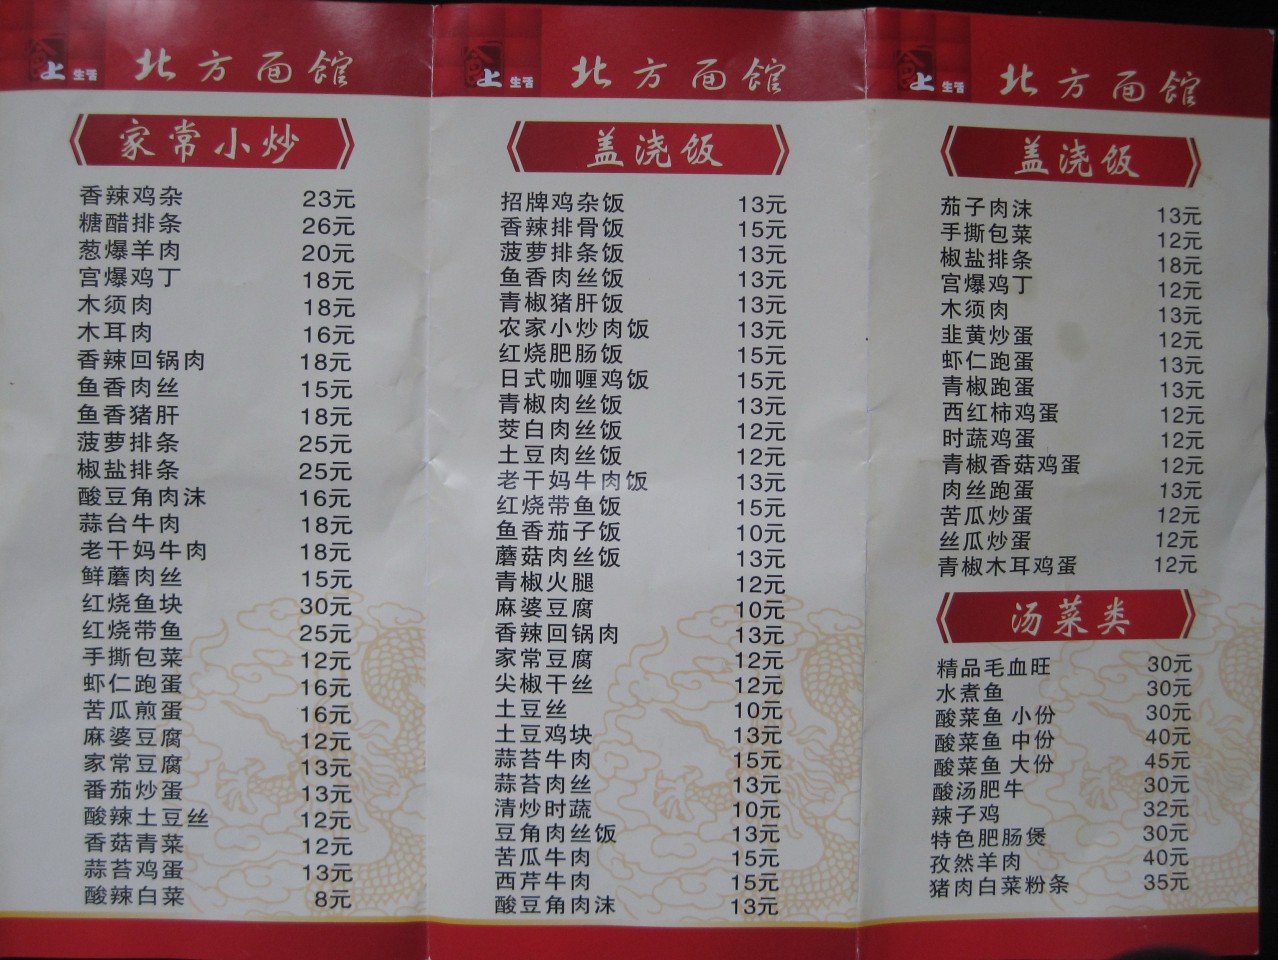 上 生活 北方面馆
家常小炒
香辣鸡杂 23元
糖醋排条 26元
葱爆羊肉 20元
宫爆鸡丁 18元
木须肉 18元
木耳肉 16元
香辣回锅肉 18元
鱼香肉丝 15元
鱼香猪肝 18元
菠萝排条 25元
椒盐排条 25元
酸豆角肉沫 16元
蒜台牛肉 18元
老干妈牛肉 18元
鲜蘑肉丝 15元
红烧鱼块 30元
红烧带鱼 25元
手撕包菜 12元
虾仁跑蛋 16元
苦瓜煎蛋 16元
麻婆豆腐 12元
家常豆腐 13元
番茄炒蛋 13元
酸辣土豆丝 12元
香菇青菜 12元
蒜苔鸡蛋 13元
酸辣白菜 8元
上 生活 北方面馆
盖浇饭
招牌鸡杂饭 13元
香辣排骨饭 15元
菠萝排条饭 13元
鱼香肉丝饭 13元
青椒猪肝饭 13元
农家小炒肉饭 13元
红烧肥肠饭 15元
日式咖喱鸡饭 15元
青椒肉丝饭 13元
茭白肉丝饭 12元
土豆肉丝饭 12元
老干妈牛肉饭 13元
红烧带鱼饭 15元
鱼香茄子饭 10元
蘑菇肉丝饭 13元
青椒火腿 12元
麻婆豆腐 10元
香辣回锅肉 13元
家常豆腐 12元
尖椒干丝 12元
土豆丝 10元
土豆鸡块 13元
蒜苔牛肉 15元
蒜苔肉丝 13元
清炒时蔬 10元
豆角肉丝饭 13元
苦瓜牛肉 15元
西芹牛肉 15元
酸豆角肉沫 13元
上 生活 北方面馆
盖浇饭
茄子肉沫 13元
手撕包菜 12元
椒盐排条 18元
宫爆鸡丁 12元
木须肉 13元
韭黄炒蛋 12元
虾仁跑蛋 13元
青椒跑蛋 13元
西红柿鸡蛋 12元
时蔬鸡蛋 12元
青椒香菇鸡蛋 12元
肉丝跑蛋 13元
苦瓜炒蛋 12元
丝瓜炒蛋 12元
青椒木耳鸡蛋 12元
汤菜类
精品毛血旺 30元
水煮鱼 30元
酸菜鱼 小份 30元
酸菜鱼 中份 40元
酸菜鱼 大份 45元
酸汤肥牛 30元
辣子鸡 32元
特色肥肠煲 30元
孜然羊肉 40元
猪肉白菜粉条 35元